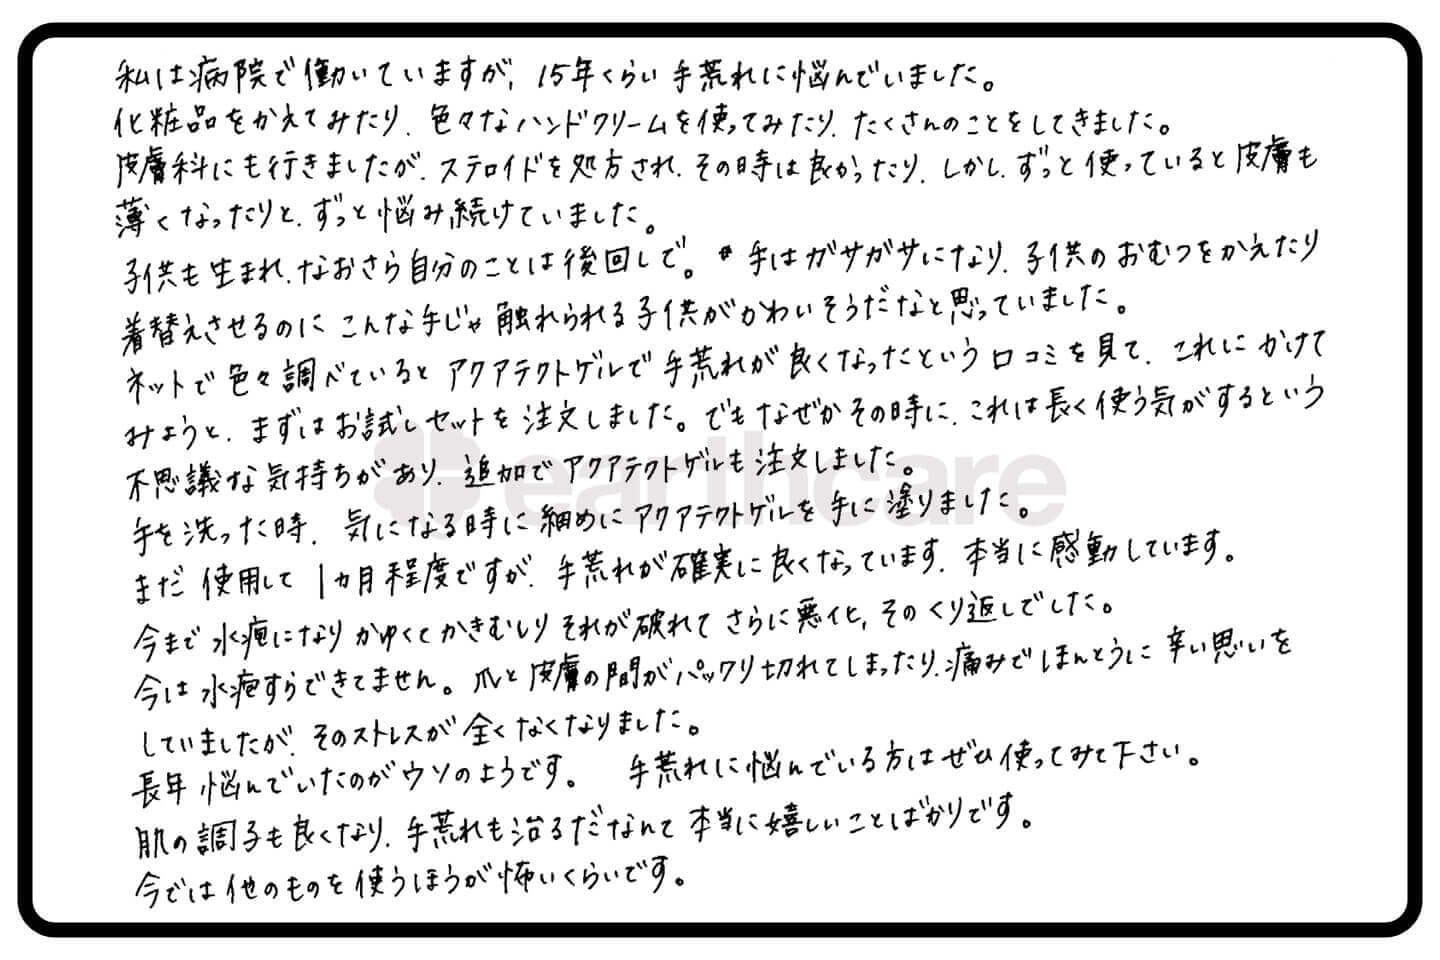 私は病院で働いていますが、15年くらい手荒れに悩んでいました。
化粧品をかえてみたり、色々なハンドクリームを使ってみたり、たくさんのことをしてきました。
皮膚科にも行きましたが、ステロイドを処方され、その時は良かったり、しかし、ずっと使っていると皮膚も
薄くなったりと、ずっと悩み続けていました。
子供も生まれ、なおさら自分のことは後回しで。手はガサガサになり、子供のおむつをかえたり
着替えさせるのにこんな手じゃ触れられる子供がかわいそうだなと思っていました。
ネットで色々調べているとアクアテクトゲルで手荒れが良くなったという口コミを見て、これにかけて
みようと、まずはお試しセットを注文しました。でもなぜかその時に、これは長く使う気がするという
不思議な気持ちがあり、追加でアクアテクトゲルも注文しました。
earthcare
手を洗った時、気になる時に細めにアクアテクトゲルを手に塗りました。
まだ使用して1カ月程度ですが、手荒れが確実に良くなっています。本当に感動しています。
今まで水疱になりかゆくてかきむしりそれが破れてさらに悪化、そのくり返しでした。
今は水疱すらできてません。爪と皮膚の間がパックリ切れてしまったり、痛みでほんとうに辛い思いを
していましたが、そのストレスが全くなくなりました。
長年悩んでいたのがウソのようです。 手荒れに悩んでいる方はぜひ使ってみて下さい。
肌の調子も良くなり、手荒れも治るだなんて本当に嬉しいことばかりです。
今では他のものを使うほうが怖いくらいです。